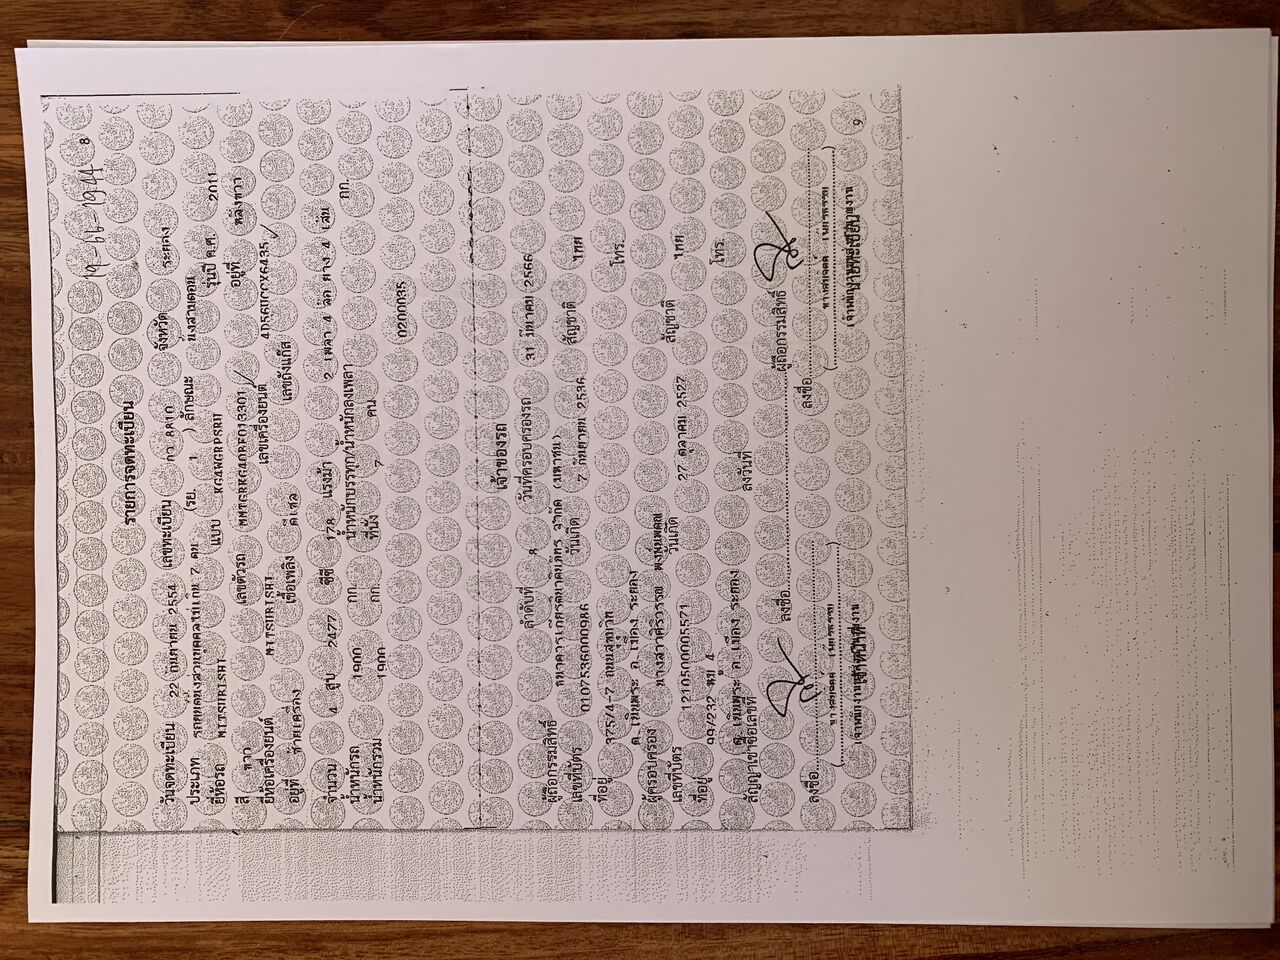 19-66-1944 8
รายการจดทะเบียน
วันจดทะเบียน 22 กันยายน 2554 เลขทะเบียน กว 8810 จังหวัด ระยอง
ประเภท รถยนต์นั่งส่วนบุคคลไม่เกิน 7 คน (รย. 1 ) ลักษณะ นั่งสามตอน
ยี่ห้อรถ MITSUBISHI แบบ KG4WGRPSRMT รุ่นปี ค.ศ. 2011
สี ขาว เลขตัวรถ อยู่ที่ หลังขวา
ยี่ห้อเครื่องยนต์ MITSUBISHI เลขเครื่องยนต์ 4D56UCCX6435
อยู่ที่ ซ้ายเครื่อง เชื้อเพลิง ดีเซล เลขถังแก๊ส
จำนวน 4 สูบ 2477 ซีซี 178 แรงม้า 2 เพลา 4 ล้อ ยาง 4 เส้น
น้ำหนักรถ 1900 กก. น้ำหนักบรรทุก/น้ำหนักลงเพลา กก.
น้ำหนักรวม 1900 กก. ที่นั่ง 7 คน
0200035
เจ้าของรถ
ลำดับที่ 8 วันที่ครอบครองรถ 31 มีนาคม 2566
ผู้ถือกรรมสิทธิ์ ธนาคารเกียรตินาคินภัทร จำกัด (มหาชน)
เลขที่บัตร 0107536000986 วันเกิด 7 กันยายน 2536 สัญชาติ ไทย
ที่อยู่ 375/4-7 ถนนสุขุมวิท
ต.เนินพระ อ.เมือง ระยอง โทร.
ผู้ครอบครอง นางสาวศิริวรรณ
เลขที่บัตร 1210500005571 วันเกิด 27 ตุลาคม 2527 สัญชาติ ไทย
ที่อยู่ 99/232 หมู่ 4
ต.เนินพระ อ.เมือง ระยอง โทร.
สัญญาเช่าซื้อเลขที่ ลงวันที่
ลงชื่อ ผู้ถือกรรมสิทธิ์
ลงชื่อ ลงชื่อ
9